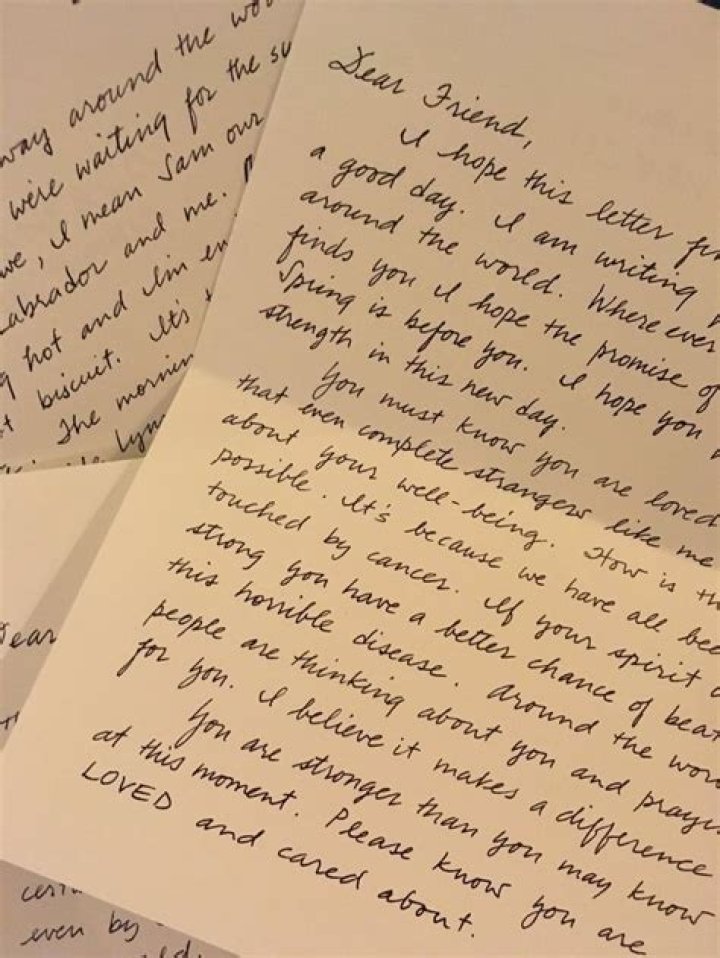 way around the
we're waiting for the
we, I mean Sam our
Labrador and me.
hot and I'm
biscuit. It's
The
Dear Friend,
I hope this letter
a good day. I am writing
around the world. Where ever
finds you I hope the promise of
Spring is before you. I hope you
strength in this new day.
You must know you are loved
that even complete strangers like me
about your well-being. How is
possible. It's because we have all
touched by cancer. If your spirit
strong you have a better chance of
this horrible disease. Around the
people are thinking about you and
for you. I believe it makes a difference
You are stronger than you may know
at this moment. Please know you are
LOVED and cared about.
even by